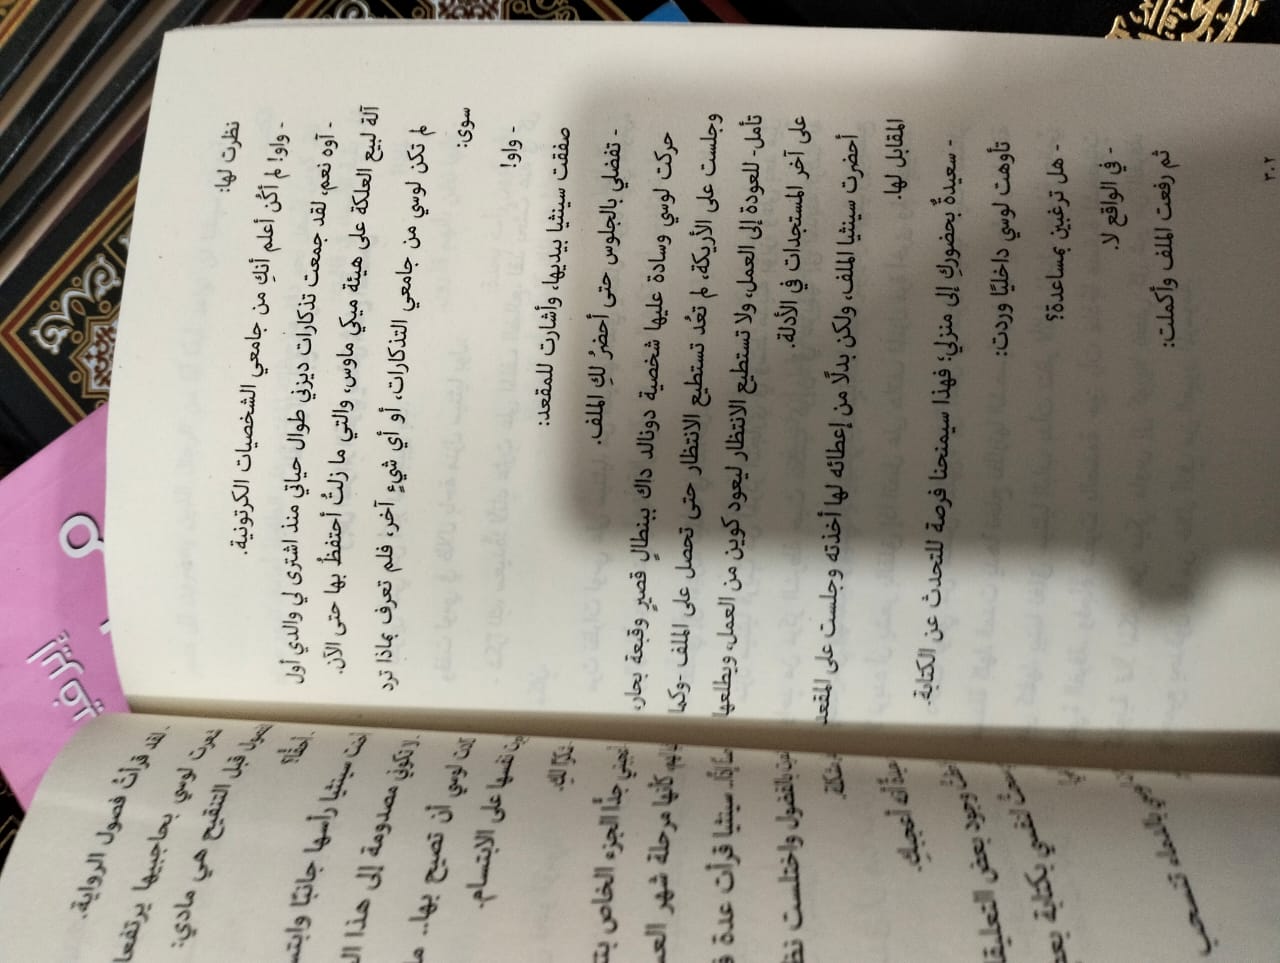 نظرت لها:
- واو! لم أكُن أعلم أنكِ من جامعي الشخصيات الكرتونية.
- آوه نعم، لقد جمعت تذكارات ديزني طوال حياتي منذ اشترى لي والدي أول
آلة لبيع العلكة على هيئة ميكي ماوس، والتي ما زلتُ أحتفظُ بها حتى الآن.
لم تكن لوسي من جامعي التذكارات، أو أي شيءٍ آخر، فلم تعرف بماذا ترد
سوى:
- واو!
صفقت سينثيا بيديها، وأشارت للمقعد:
- تفضلي بالجلوس حتى أحضرُ لكِ الملف.
حركت لوسي وسادة عليها شخصية دونالد داك ببنطالٍ قصيرٍ وقبعة بحار،
وجلست على الأريكة، لم تعُد تستطيع الانتظار حتى تحصل على الملف -وكما
تأمل- للعودة إلى العمل، ولا تستطيع الانتظار ليعود كوين من العمل، ويطلعها
على آخر المستجدات في الأدلة.
أحضرت سينثيا الملف، ولكن بدلًا من إعطائه لها أخذته وجلست على المقعد
المقابل لها.
- سعيدةٌ بحضوركِ إلى منزلي؛ فهذا سيمنحنا فرصة للتحدث عن الكتابة.
تأوهت لوسي داخليًا وردت:
- هل ترغبين بمساعدة؟
- في الواقع لا.
ثم رفعت الملف وأكملت:
٣٠٢
لقد قرأتُ فصول الرواية.
لوسي بحاجبيها يرتفعا
قبل التنقيح هي مادي:
سينثيا رأسها جانبًا وابتس
تكوني مصدومة إلى هذا ال
لوسي أن تصيح بها.. ما
نفسها على الابتسام.
جدًا الجزء الخاص بتـ
كأنها مرحلة شهر العس
سينثيا قرأت عدة ف
بالفضول واختلست نظ
أنه أعجبكِ.
وجود بعض التعليقا
لنفسي بكتابة بعـ
بالدماء تنسحب